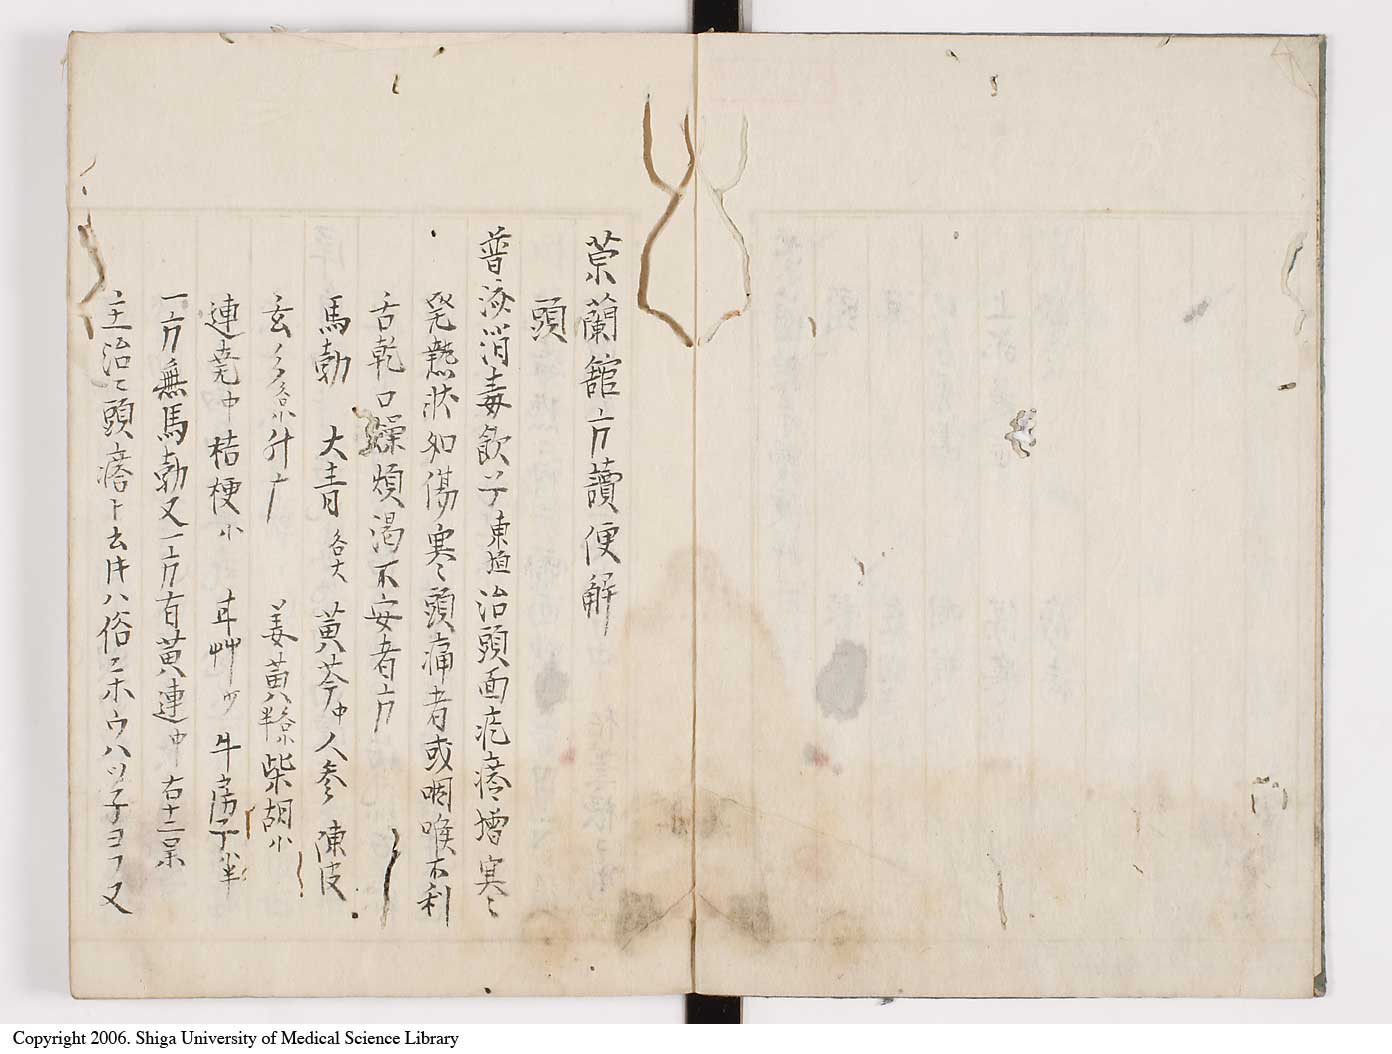 崇蘭館方讀便解
頭
普済消毒飲子 東垣 治頭面疙瘩憎寒
発熱状如傷寒頭痛者或咽喉不利
舌乾口燥煩渇不安者方
馬勃 大青 各大 黄芩中 人参 陳皮
玄参 各小 升 姜黄 柴胡小
連堯中 桔梗小 牛房子小半
一方無馬勃又一方有黄連中 右十二味
主治ニ頭瘩ト云此ハ俗ニホウハツ子ヨフ又
Copyright 2006. Shiga University of Medical Science Library